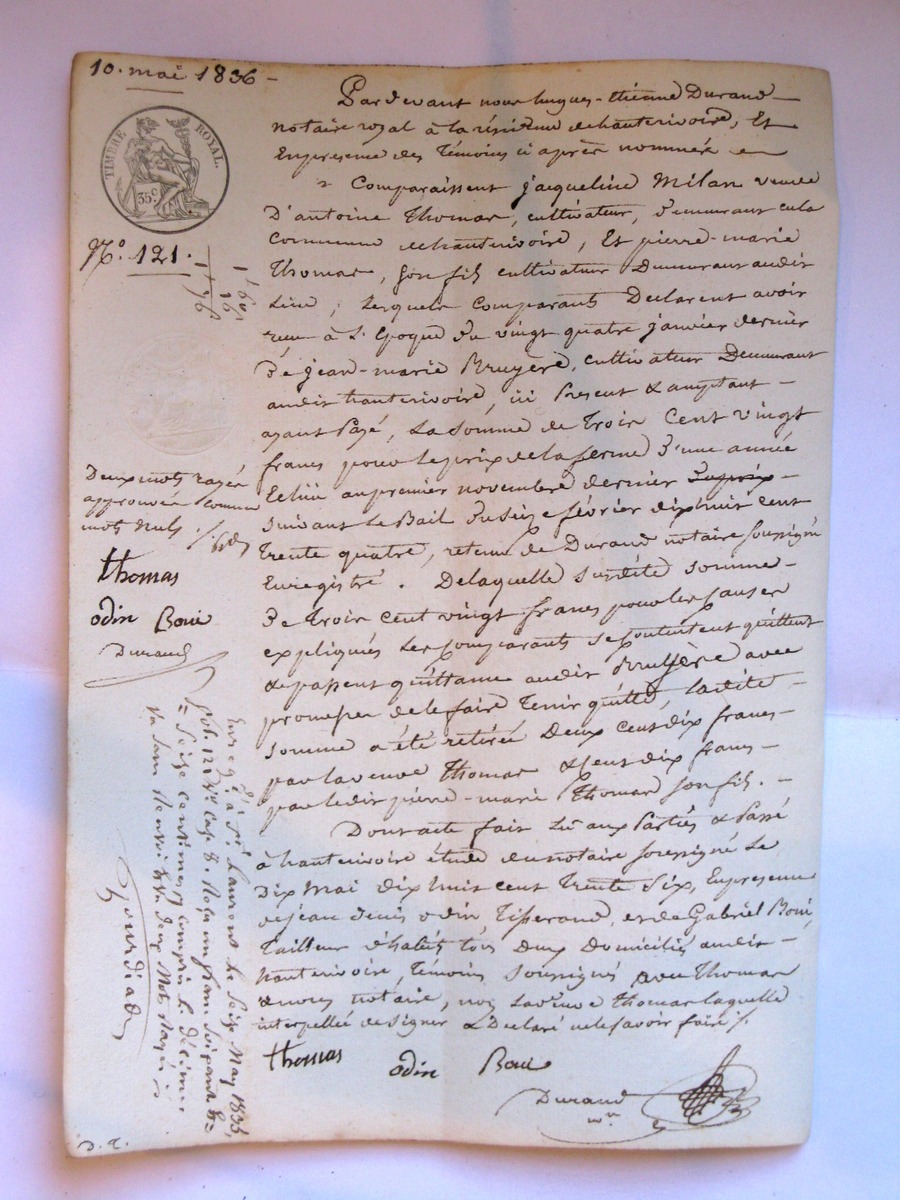 10. mai 1836 -
TIMBRE ROYAL
35 c.
N.º 121.
1 60
16
1 76
Pardevant nous hugues-étienne Durand
notaire royal à la résidence de hauterivoire, Et
Enpresence des Témoins ci après nommés
Comparaissent jacqueline Milan veuve
D'antoine Thomas, cultivateur, demeurant en la
Commune de hauterivoire, Et pierre-marie
Thomas, son fils cultivateur Demeurant audit
Lieu ; Lesquels comparants Déclarent avoir
reçu à L'Epoque du vingt quatre janvier dernier
de jean-marie Bruyère, cultivateur Demeurant
audit hauterivoire, ici Présent & acceptant -
ayant Payé, La somme de Trois Cent vingt
francs pour le prix de la ferme d'une année
Echue au premier novembre dernier
suivant Le Bail du seize février dixhuit cent
trente quatre, retenu de Durand notaire soussigné
Enregistré. De laquelle susdite somme -
de Trois cent vingt francs pour les causes
expliquées Les comparants se contentent quittent
& passent quittance audit Bruyère avec
promesse de le faire Tenir quitte, ladite -
somme a été retirée Deux cent dix francs -
par la veuve Thomas & cent dix francs -
par ledit pierre-marie Thomas son fils. -
Dont acte fait Lu aux Parties & Passé
à hauterivoire étude du notaire soussigné Le
Dix Mai dix huit cent trente six, Enpresence
de jean denis odin Tisserand, et de Gabriel Boui,
Tailleur d'habits tous deux Domiciliés audit -
hauterivoire, Témoins soussignés avec Thomas
& nous notaire, non La veuve Thomas laquelle
interpellée de signer a Déclaré ne le savoir faire /.
thomas
odin Boui
Durand
nre
Deux mots rayés
approuvés comme
mots nuls /.
thomas
odin Boui
Durand
Enregé. à St. Laurent le seize May 1836,
fol. 121 Vo. Case 8. Reçu un franc soixante &
Seize centimes compris le décime
Gourdiad